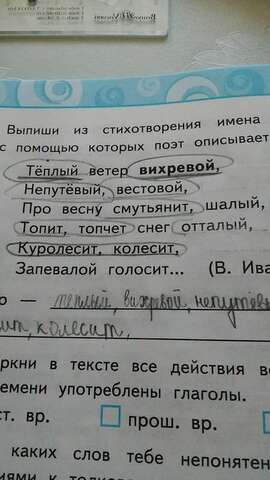 Выпиши из стихотворения имена
с помощью которых поэт описывает
Тёплый ветер вихревой,
Непутёвый, вестовой,
Про весну смутьянит, шалый,
Топит, топчет снег отталый,
Куролесит, колесит,
Запевалой голосит... (В. Ива
о — тёплый, вихревой, непутёвы
ит, колесит.
ркни в тексте все действия ве
емени употреблены глаголы.
ст. вр. прош. вр.
каких слов тебе непонятен
иями к толково